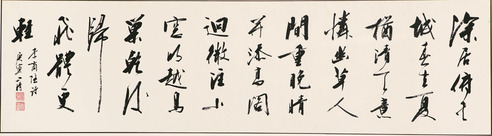 深居俯夹
城春去夏
猶清天意
憐幽草人
間重晚晴
并添高閣
迥微注小
窗明越鳥
巢乾後
歸
飛體更
輕
李商隱詩